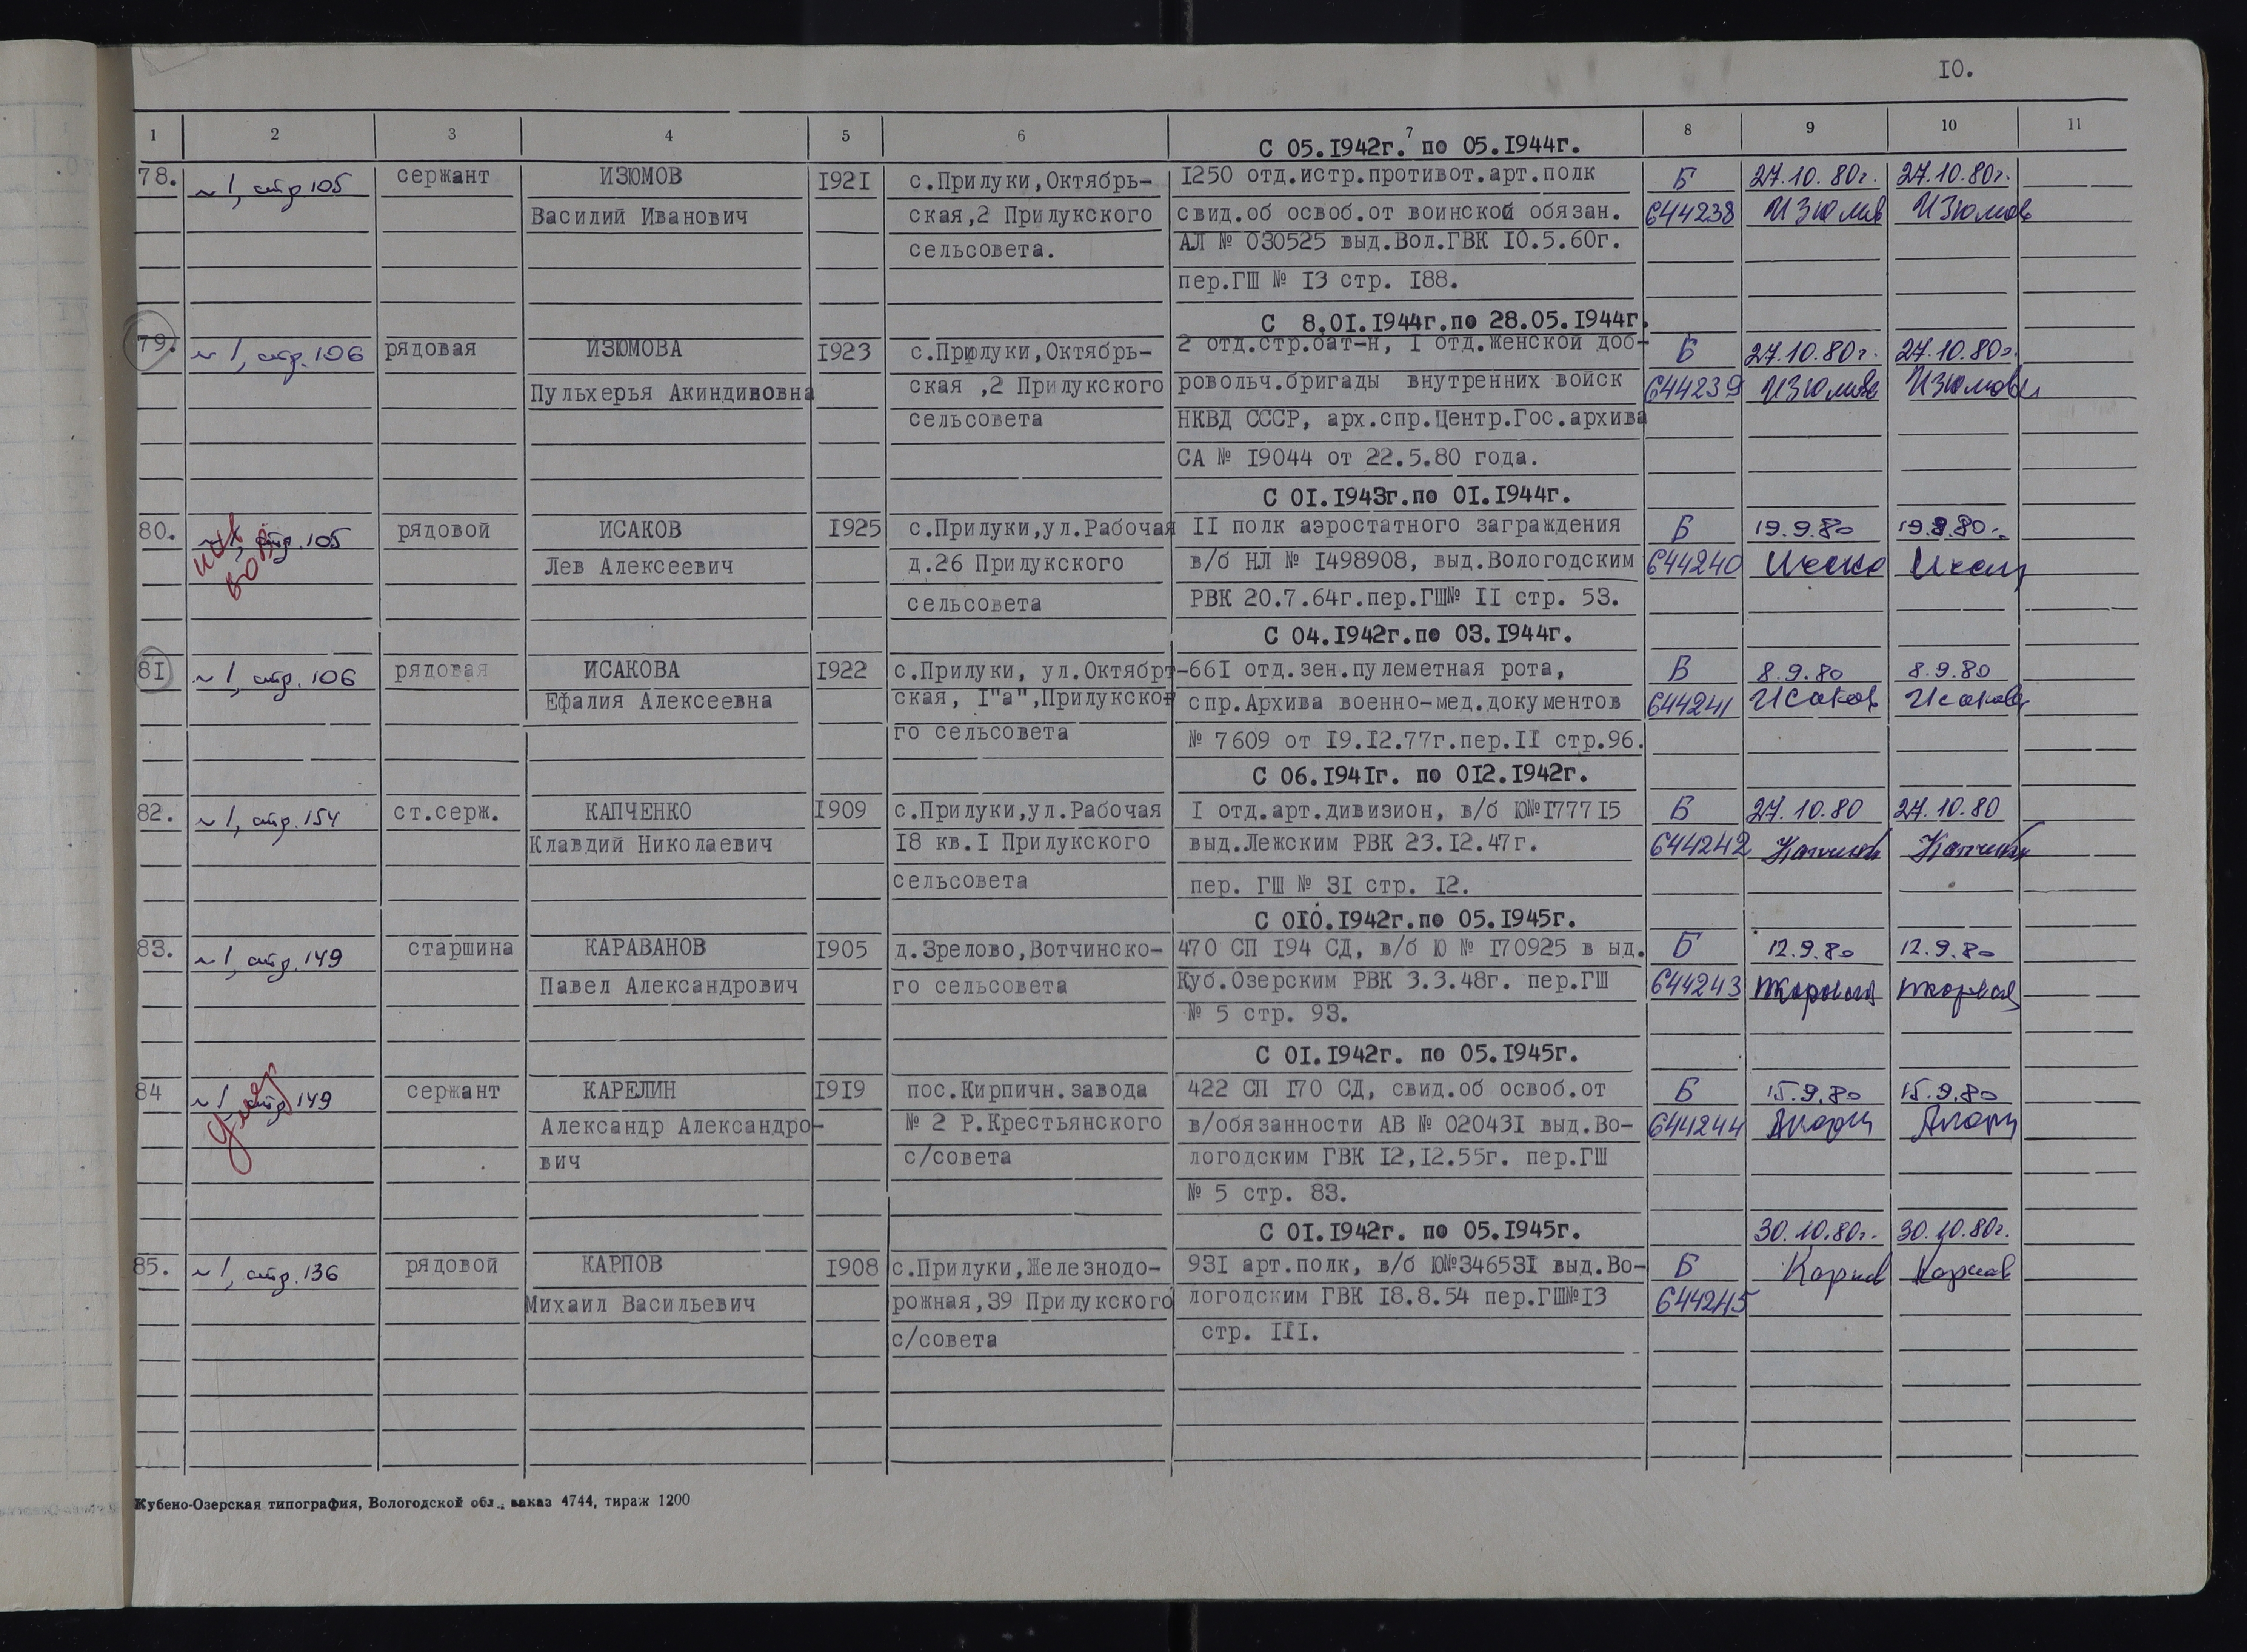 10.
1 2 3 4 5 6 7 8 9 10 11
С 05.1942г. по 05.1944г.
78. №1, стр 105 сержант ИЗЮМОВ 1921 с.Прилуки,Октябрь- 1250 отд.истр.противот.арт.полк Б 27.10.80г. 27.10.80г.
Василий Иванович ская,2 Прилукского свид.об освоб.от воинской обязан. 644238 Изюмов Изюмов
сельсовета. АЛ № 030525 выд.Вол.ГВК 10.5.60г.
пер.ГШ № 13 стр. 188.
С 8.01.1944г.по 28.05.1944г.
79. №1, стр.106 рядовая ИЗЮМОВА 1923 с.Прилуки,Октябрь- 2 отд.стр.бат-н, 1 отд.женской доб- Б 27.10.80г. 27.10.80г.
Пульхерья Акиндиновна ская ,2 Прилукского ровольч.бригады внутренних войск 644239 Изюмова Изюмова
сельсовета НКВД СССР, арх.спр.Центр.Гос.архива
СА № 19044 от 22.5.80 года.
С 01.1943г.по 01.1944г.
80. №1, стр.105 рядовой ИСАКОВ 1925 с.Прилуки,ул.Рабочая 11 полк аэростатного заграждения Б 19.9.80 19.9.80г.
Лев Алексеевич д.26 Прилукского в/б НЛ № 1498908, выд.Вологодским 644240
сельсовета РВК 20.7.64г.пер.ГШ№ 11 стр. 53.
С 04.1942г.по 03.1944г.
81 №1, стр.106 рядовая ИСАКОВА 1922 с.Прилуки, ул.Октябрт- 661 отд.зен.пулеметная рота, Б 8.9.80 8.9.80
Ефалия Алексеевна ская, 1"а",Прилукско- спр.Архива военно-мед.документов 644241 Исакова Исакова
го сельсовета № 7609 от 19.12.77г.пер.11 стр.96.
С 06.1941г. по 012.1942г.
82. №1, стр.154 ст.серж. КАПЧЕНКО 1909 с.Прилуки,ул.Рабочая 1 отд.арт.дивизион, в/б Ю№177715 Б 27.10.80 27.10.80
Клавдий Николаевич 18 кв.1 Прилукского выд.Лежским РВК 23.12.47г. 644242
сельсовета пер. ГШ № 31 стр. 12.
С 010.1942г.по 05.1945г.
83. №1, стр.149 старшина КАРАВАНОВ 1905 д.Зрелово,Вотчинско- 470 СП 194 СД, в/б Ю № 170925 в ыд. Б 12.9.80 12.9.80
Павел Александрович го сельсовета Куб.Озерским РВК 3.3.48г. пер.ГШ 644243
№ 5 стр. 93.
С 01.1942г. по 05.1945г.
84 №1 стр 149 сержант КАРЕЛИН 1919 пос.Кирпичн.завода 422 СП 170 СД, свид.об освоб.от Б 15.9.80 15.9.80
Александр Александро- № 2 Р.Крестьянского в/обязанности АВ № 020431 выд.Во- 644244
вич с/совета логодским ГВК 12,12.55г. пер.ГШ
№ 5 стр. 83.
С 01.1942г. по 05.1945г. 30.10.80г. 30.10.80г.
85. №1, стр.136 рядовой КАРПОВ 1908 с.Прилуки,Железнодо- 931 арт.полк, в/б Ю№346531 выд.Во- Б Карпов Карпов
Михаил Васильевич рожная,39 Прилукского логодским ГВК 18.8.54 пер.ГШ№13 644245
с/совета стр. 111.
Кубено-Озерская типография, Вологодской обл., заказ 4744, тираж 1200